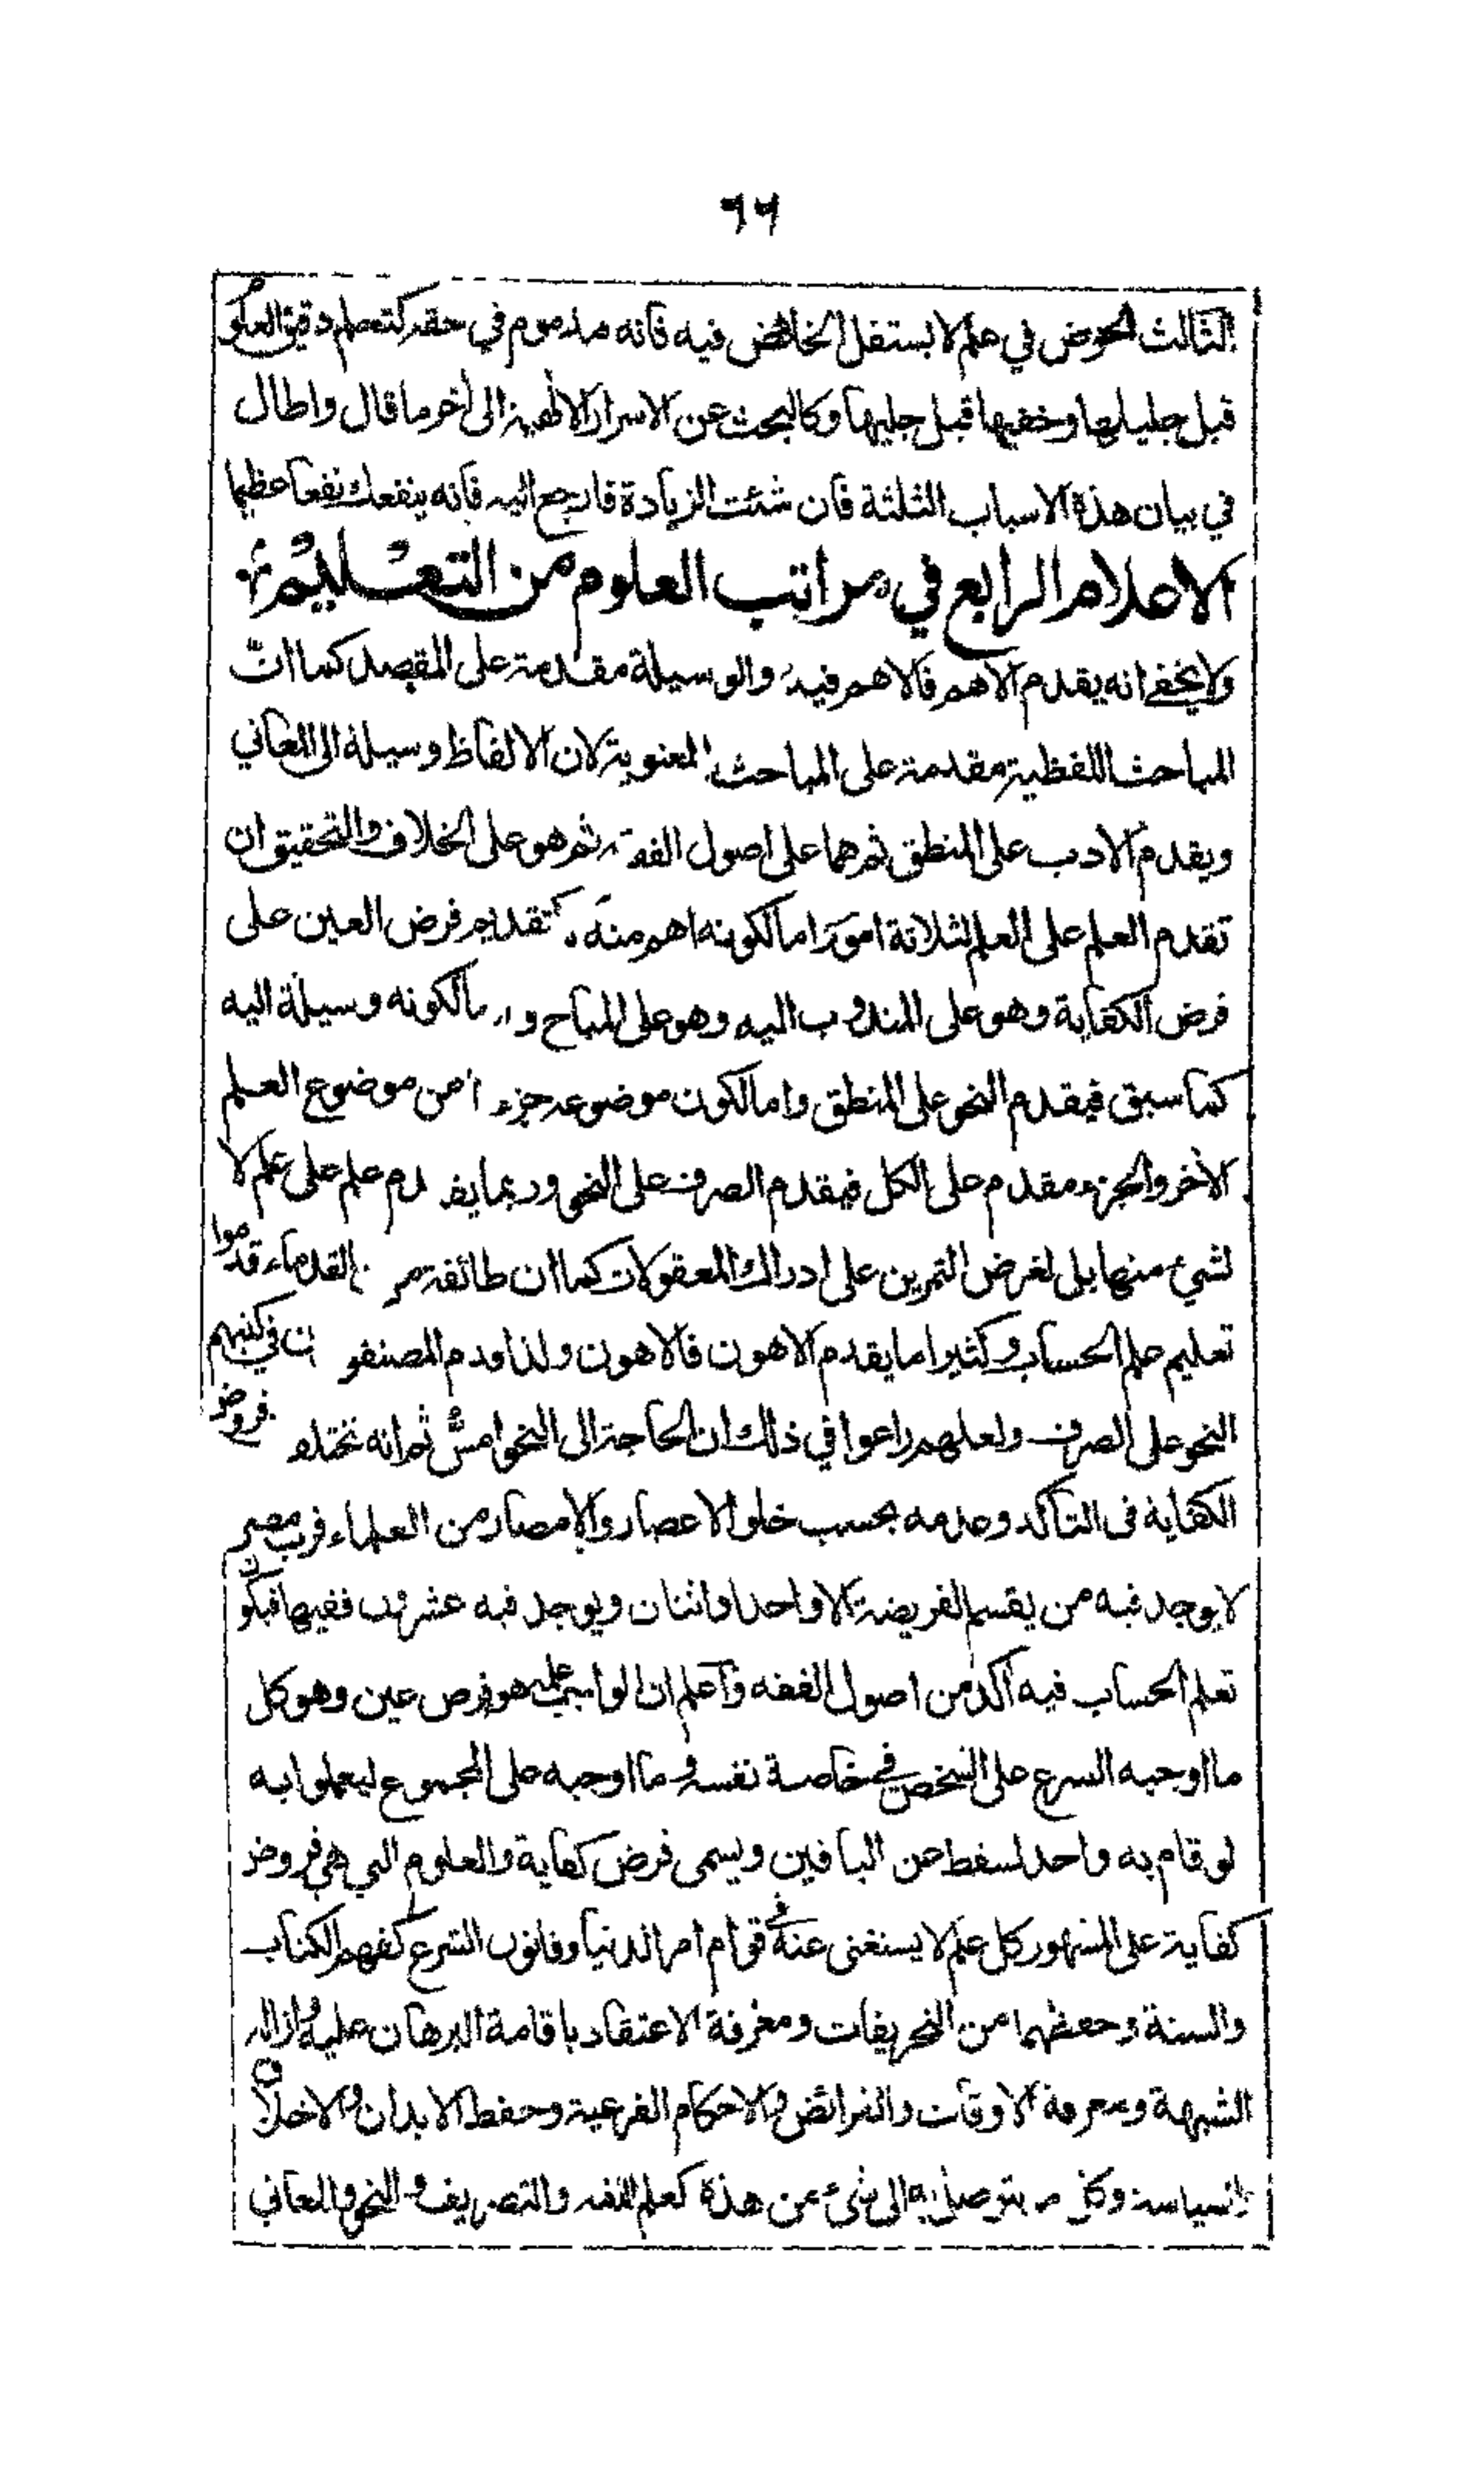 ٦٦
الثالث الخوض في علم لا يستقل الخائض فيه فانه مذموم في حقه كتعلم دقيق العلوم
قبل جليلها وخفيها قبل جليها وكالبحث عن الاسرار الالهية الى اخر ما قال واطال
في بيان هذه الاسباب الثلثة فان شئت الزيادة فارجع اليه فانه ينفعك نفعا عظيما
الاعلام الرابع في مراتب العلوم من التعليم
ولا يخفى انه يقدم الاهم فالاهم فيه والوسيلة مقدمة على المقصد كما ان
المباحث اللفظية مقدمة على المباحث المعنوية لان الالفاظ وسيلة الى المعاني
ويقدم الادب على المنطق ثم هما على اصول الفقه ثم هو على الخلاف والتحقيق ان
تقدم العلم على العلم لثلاثة امور اما لكونه اهم منه كتقديم فرض العين على
فرض الكفاية وهو على المندوب اليه وهو على المباح واما لكونه وسيلة اليه
كما سبق فيقدم النحو على المنطق واما لكون موضوعه جزء ا من موضوع العلم
الاخر والجزء مقدم على الكل فيقدم الصرف على النحو وربما يقدم علم على علم لا
لشيء منها بل لغرض التمرين على ادراك المعقولات كما ان طائفة من القدماء قدموا
تعليم علم الحساب وكثيرا ما يقدم الاهون فالاهون ولذا قدم المصنفون في كتبهم
النحو على الصرف ولعلهم راعوا في ذلك ان الحاجة الى النحو امس ثم انه تختلف فروض
الكفاية في التاكد وعدمه بحسب خلو الاعصار والامصار من العلماء فرب مصر
لا يوجد فيه من يقسم الفريضة الا واحد او اثنان ويوجد فيه عشرون فقيها فيكون
تعلم الحساب فيه آكد من اصول الفقه واعلم ان الواجب علمه هو فرض عين وهو كل
ما اوجبه الشرع على الشخص في خاصة نفسه وما اوجبه على المجموع ليعملوا به
لو قام به واحد لسقط عن الباقين ويسمى فرض كفاية والعلوم التي هي فروض
كفاية على المشهور كل علم لا يستغنى عنه في قوام امر الدنيا وقانون الشرع كفهم الكتاب
والسنة وحفظهما من التحريفات ومعرفة الاعتقاد باقامة البرهان عليه وازالة
الشبهة ومعرفة الاوقات والفرائض والاحكام الفرعية وحفظ الابدان والاخلاق
والسياسة وكل ما يتوصل به الى شيء من هذه كعلم اللغه والتصريف والنحو والمعاني